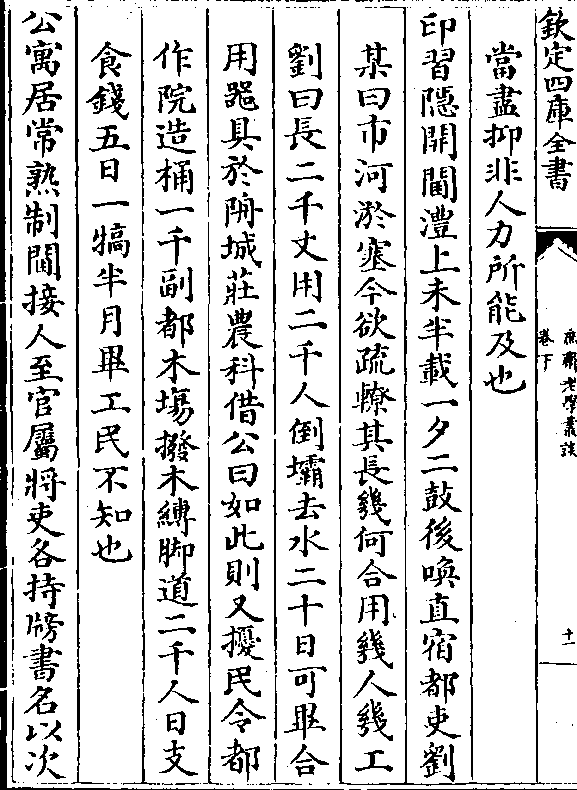 欽定四庫全書
庶齋老學叢談
卷下
十一
當盡抑非人力所能及也
印習隱開閫澧上未半載一夕二鼓後喚直宿都吏劉
某曰市河淤塞今欲疏轑其長幾何合用幾人幾工
劉曰長二千丈用二千人倒壩去水二十日可畢合
用噐具於附城莊農科借公曰如此則又擾民令都
作院造桶一千副都木場撥木縛脚道二千人日支
食錢五日一犒半月畢工民不知也
公寓居常熟制閫接人至官屬將吏各持牓書名以次